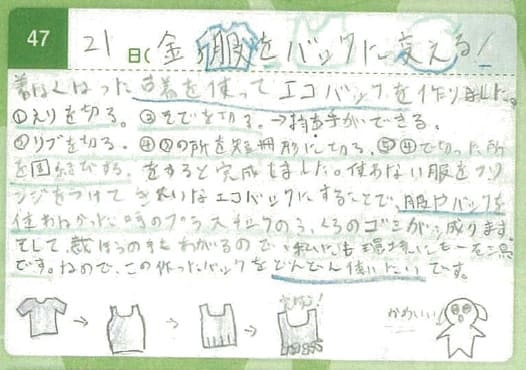 47
21日(金) 服をバックに変える!
着なくなった古着を使ってエコバックを作りました。
①えりを切る。③そでを切る。→持ち手ができる。
②リブを切る。④③の所を短冊形に切る。⑤④で切った所
を固結びする。をすると完成しました。使わない服をアレ
ンジをつけてきれいなエコバックにすることで、服やバックを
使わなかった時のプラスチックのふくろのゴミが減ります。
そして、裁ほうの も わかるので、私にも環境にも一石二鳥
です。なので、この作ったバックをどんどん使いたいです。
完成!
かわいい!